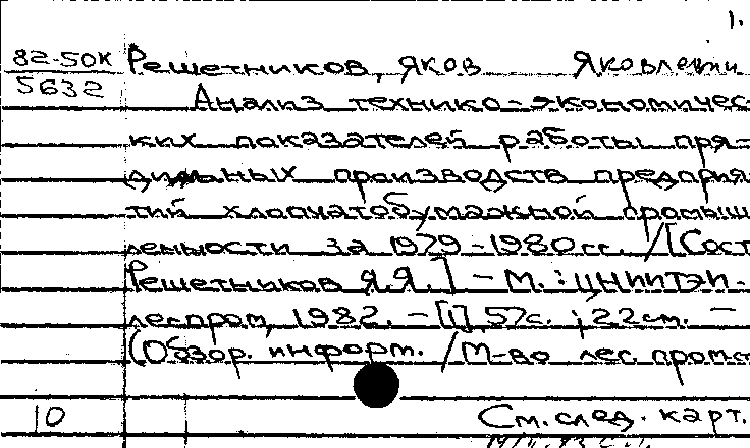 1.
82-50К Решетников, Яков Яковлеви
5632
Анализ технико-экономичес
ких показателей работы пря-
дильных производств предприя-
тий хлопчатобумажной промыш
ленности за 1979-1980гг. /[Сост
Решетников Я.Я.] - М. : ЦНИИТЭИ-
леспром, 1982. - [1], 57с. ; 22см. -
(Обзор. информ. / М-во лес. пром-
10 См. след. карт.